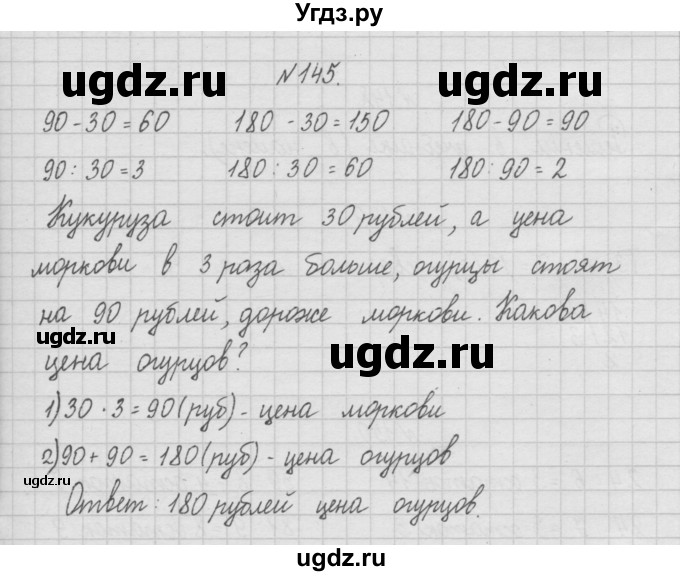 Угдз.ру
ugdz.ru ugdz.ru
№145.
90 - 30 = 60 180 - 30 = 150 180 - 90 = 90
90 : 30 = 3 180 : 30 = 60 180 : 90 = 2
Кукуруза стоит 30 рублей, а цена
моркови в 3 раза больше, огурцы стоят
на 90 рублей, дороже моркови. Какова
ugdz.ru ugdz.ru
цена огурцов?
1) 30 · 3 = 90 (руб) - цена моркови
2) 90 + 90 = 180 (руб) - цена огурцов
ugdz.ru ugdz.ru
Ответ: 180 рублей цена огурцов.
ugdz.ru